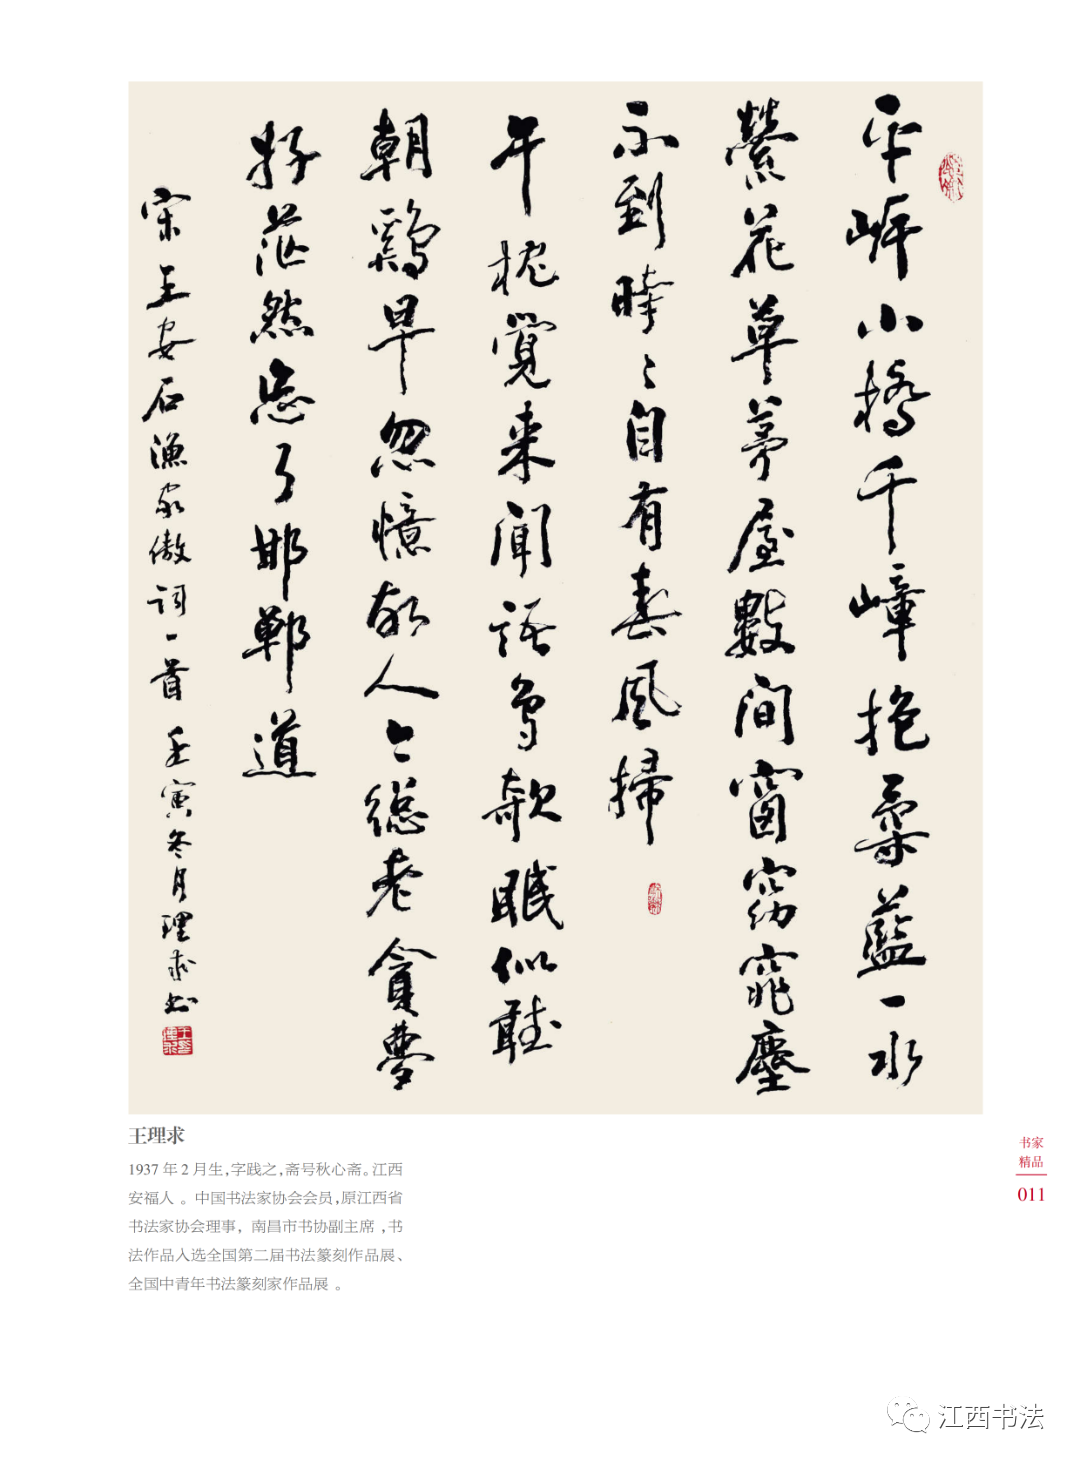 平岸小橋千嶂抱柔藍一水
縈花草茅屋數間窗窈窕塵
不到時〻自有春風掃
午枕覺來聞語鳥欹眠似聽
朝鷄早忽憶故人今總老貪夢
好茫然忘了邯鄲道
宋王安石漁家傲詞一首 壬寅冬月理求书
王理求
1937 年 2 月生，字践之，斋号秋心斋。江西
安福人 。 中国书法家协会会员，原江西省
书法家协会理事， 南昌市书协副主席 ，书
法作品入选全国第二届书法篆刻作品展、
全国中青年书法篆刻家作品展 。
书家
精品
011
江西书法